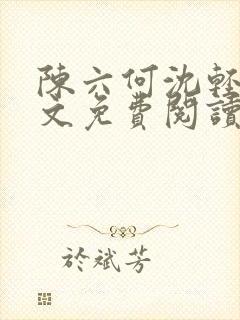 陳六何沈輕
文免費閱讀
於斌芳